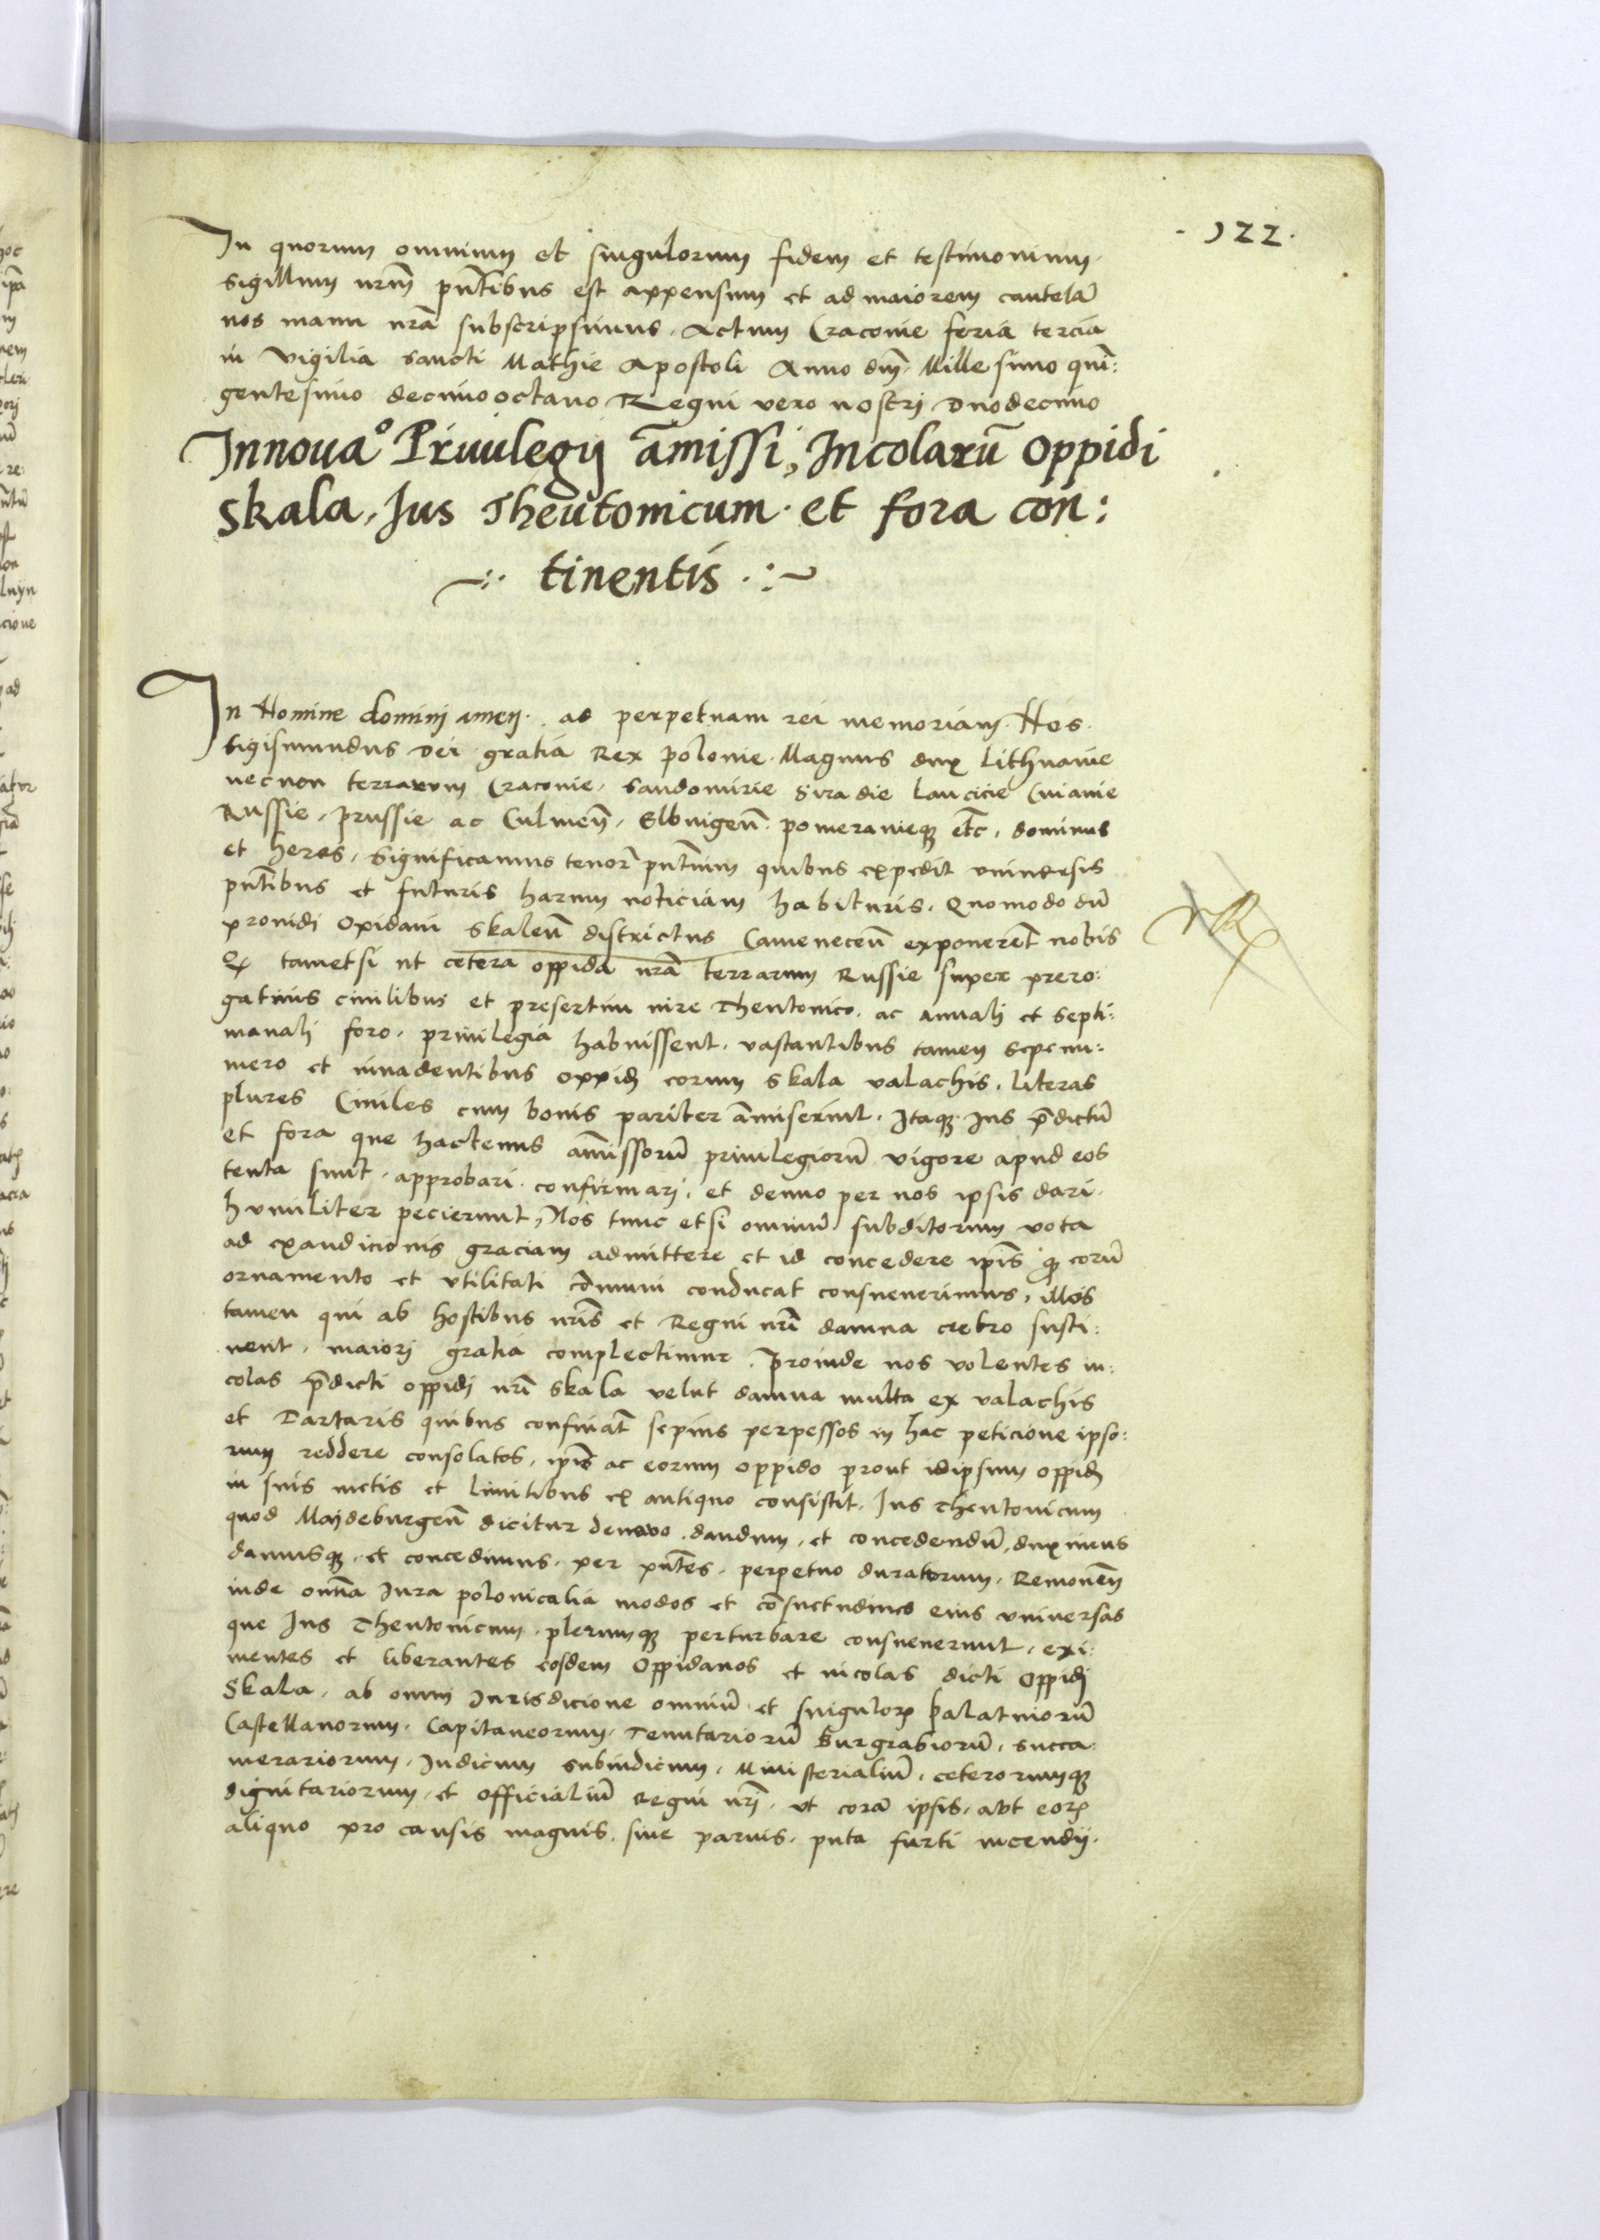 . 122 .
In quorum omnium et singulorum fidem et testimonium
sigillum nrm̃ pñtibus est appensum et ad maiorem cautelã
nos manu nrã subscripsimus. Actum Cracovie feria tercia
in vigilia sancti Mathie Apostoli Anno dnĩ Millesimo quĩ:
gentesimo decimooctavo Regni vero nostrj duodecimo
Innoua° Priuilegij ãmissi, Incolarũ Oppidi
Skala, Ius Theutonicum et fora con:
tinentis
In Nomine dominj amen. ad perpetuam rei memoriam. Nos
Sigismundus dei gratia Rex polonie Magnus dux Lithuanie
necnon terrarum Cracovie, Sandomirie Siradie Lancicie Cuiavie
Russie, prussie ac Culmeñ, Elbingeñ. pomeranieqȝ etc̃, dominus
et heres, Significamus tenorẽ pñtium quibus expedit vniuersis
pñtibus et futuris harum noticiam habituris, Quomodo dũ
prouidi Opidani Skaleñ districtus Cameneceñ exponerẽt nobis
Qȝ tametsi ut cetera oppida nrã terrarum Russie super prero:
gatiuis ciuilibus et presertim iure Theutonico, ac annualj et septi:
manalj foro, priuilegia habuissent, vastantibus tamen sepenu:
mero et inuadentibus oppidũ eorum Skala valachis, literas
plures Ciuiles cum bonis pariter ãmiserint, Itaqȝ Ius p̃dictũ
et fora que hactenus ãmissorũ priuilegiorũ vigore apud eos
tenta sunt, approbari, confirmarj, et denuo per nos ipsis dari
humiliter pecierunt, Nos tunc etsi omniũ subditorum vota
ad exaudicionis graciam admittere et id concedere ip̃is qȝ eorũ
ornamento et vtilitati cõmuni conducat consueuerimus, illos
tamen qui ab hostibus nrĩs et Regni nrĩ damna crebro susti:
nent, maiorj gratia complectimur. Proinde nos volentes in:
colas p̃dicti oppidj nrĩ Skala velut damna multa ex valachis
et Tartaris quibus confiniãt sepius perpessos in hac peticione ipso:
rum reddere consolatos, ip̃is ac eorum oppido prout idipsum oppidũ
in suis metis et limitibus ex antiquo consistit, Ius Theutonicum
quod Maydeburgeñ dicitur denovo dandum, et concedendũ, duximus
damusqȝ, et concedimus, per pñtes, perpetuo duraturum, Remoueñ
inde om̃ia Iura polonicalia modos et cõsuetudines eius vniuersas
que Ius Theutonicum, plerumqȝ perturbare consueuerunt, exi:
mentes et liberantes eosdem Oppidanos et incolas dicti Oppidj
Skala, ab omni Iurisdicione omniũ et singulorȝ palatinorũ
Castellanorum, Capitaneorum, Tenutariorũ Burgrabiorũ, Succa:
merariorum, Iudicum Subiudicum, Ministerialiũ, ceterorumqȝ
dignitariorum, et officialiũ Regni nrj̃, vt corã ipsis, aut eorȝ
aliquo pro causis magnis, siue paruis, puta furti incendij.